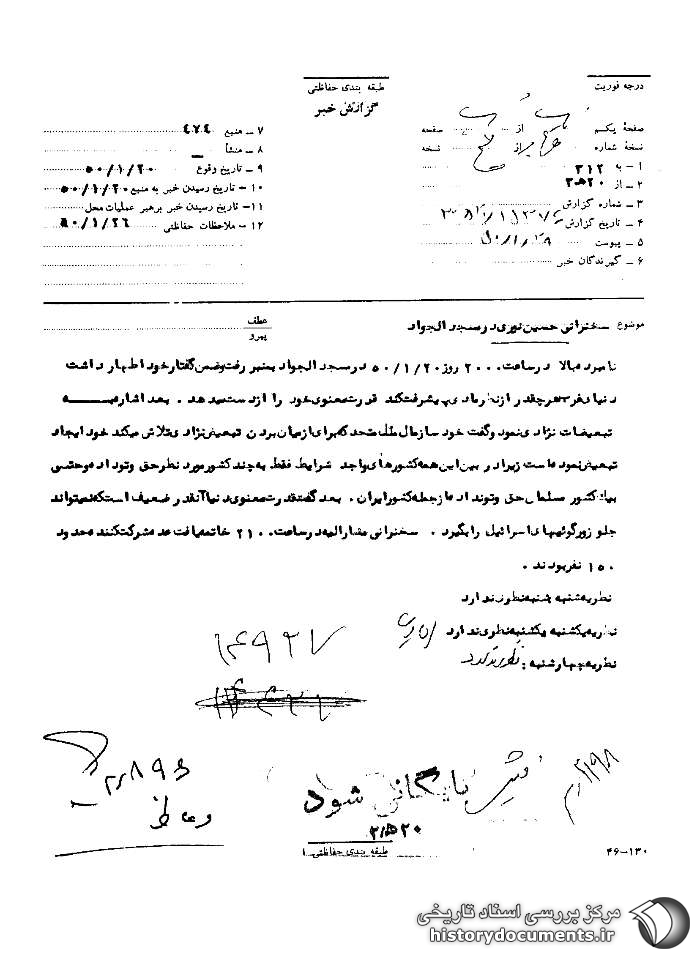 درجه فوریت
طبقه بندی حفاظتی
گزارش خبر
صفحهٔ یکم از صفحه
نسخهٔ شماره از نسخه
۱ - به ۳۱۲
۲ - از ۲۰ ﻫ ۲
۳ - شماره گزارش
۴ - تاریخ گزارش
۵ - پیوست
۶ - گیرندگان خبر
۷ - منبع ۴۷۴
۸ - منشأ —
۹ - تاریخ وقوع ۵۰/۱/۲۰
۱۰ - تاریخ رسیدن خبر به منبع ۵۰/۱/۲۰
۱۱ - تاریخ رسیدن خبر برهبر عملیات محل
۱۲ - ملاحظات حفاظتی ۵۰/۱/۲۶
موضوع سخنرانی حسین نوری در مسجد الجواد
عطف
پیرو
نامبرده بالا در ساعت ۲۰۰۰ روز ۵۰/۱/۲۰ در مسجد الجواد بمنبر رفت و ضمن گفتار خود اظهار داشت
دنیا هر چقدر از نظر مادی پیشرفت کند قدرت معنوی خود را از دست میدهد . بعد اشاره به
تبعیضات نژادی نمود و گفت خود سازمان ملل متحد که برای از میان بردن تبعیض نژادی تلاش میکند خود ایجاد
تبعیض نموده است زیرا در بین این همه کشورهای واجد شرایط فقط به چند کشور مورد نظر حق وتو داده و حتی
بیک کشور مسلمان حق وتو نداده از جمله کشور ایران . بعد گفت قدرت معنوی دنیا آنقدر ضعیف است که نمیتواند
جلو زورگوئیهای اسرائیل را بگیرد . سخنرانی مشارالیه در ساعت ۲۱۰۰ خاتمه یافت عده شرکت کننده حدود
۱۵۰ نفر بودند .
نظریه شنبه شنبه نظری ندارد
نظریه یکشنبه یکشنبه نظری ندارد
نظریه چهارشنبه : نظری ندارد
۱۴۹۲۷
۲۲۸۹۶
واعظ
بایگانی شود
۲۰ ﻫ ۲
طبقه بندی حفاظتی
۴۶-۱۳۰
مرکز بررسی اسناد تاریخی
historydocuments.ir